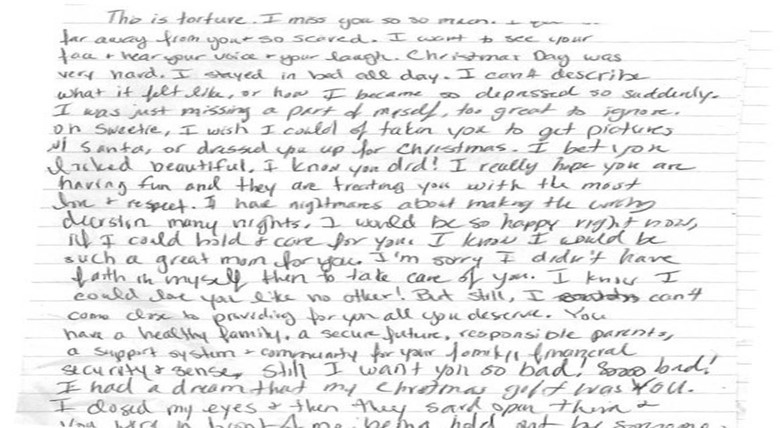 This is torture. I miss you so so much. I
far away from you + so scared. I want to see your
face + hear your voice + your laugh. Christmas Day was
very hard. I stayed in bed all day. I can't describe
what it felt like, or how I became so depressed so suddenly.
I was just missing a part of myself, too great to ignore.
Oh Sweetie, I wish I could of taken you to get pictures
w/ Santa, or dressed you up for Christmas. I bet you
looked beautiful, I know you did! I really hope you are
having fun and they are treating you with the most
love + respect. I have nightmares about making the wrong
decision many nights. I would be so happy right now,
if I could hold + care for you. I know I would be
such a great mom for you. I'm sorry I didn't have
faith in myself then to take care of you. I know I
could love you like no other! But still, I can't
come close to providing for you all you deserve. You
have a healthy family, a secure future, responsible parents,
a support system + community for your family financial
security + sense, still I want you so bad! Soooo bad!
I had a dream that my Christmas gift was YOU.
I closed my eyes + then they said open them +
you were in front of me being held out by someone